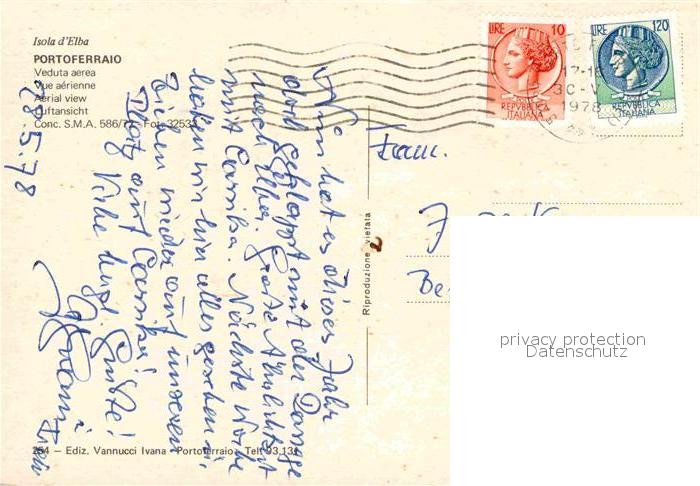 Isola d'Elba
PORTOFERRAIO
Veduta aerea
Vue aérienne
Aerial view
Luftansicht
Conc. S.M.A. 586/77 - Fot. 32533
LIRE 10
REPVBBLICA
ITALIANA
LIRE 120
REPVBBLICA
ITALIANA
17-1
30-V
1978
28.5.78
Nun hat es dieses Jahr
doch geklappt mit der Passage
nach Elba.
mit Corsika. Nächste Woche
haben wir hier alles gesehen u.
ziehen wieder auf unseren
Platz auf Corsika!
Viele Grüße!
Fam.
Be
Riproduzione vietata
254 — Ediz. Vannucci Ivana - Portoferraio - Tel. 93.131
privacy protection
Datenschutz